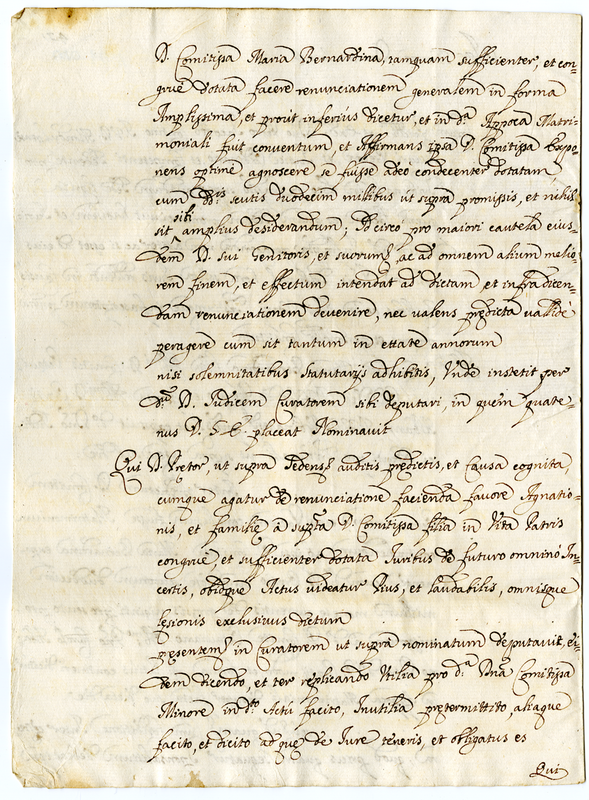 D. Comitissa Maria Bernardina, tamquam sufficienter, et con=
grue dotata facere renunciationem generalem in forma
Amplissima, et prout inferius dicetur, et in d.a Appoca Matri=
moniali fuit conventum, et Affirmans ipsa D. Comitissa Expo=
nens optimè agnoscere se fuisse adeo condecenter dotatam
cum d.is scutis duodecim millibus ut supra promissis, et nihil
sibi
sit amplius desiderandum; Id circo pro maiori cautela eius=
dem D. sui Genitoris, et suorum, ac ad omnem alium melio=
rem finem, et effectum intendat ad dictam, et infradicen=
dam renunciationem devenire, nec valens predicta vallidè
peragere cum sit tantum in ettate annorum
nisi solemnitatibus statutarijs adhibitis, Unde institit per
d.um D. Iudicem Curatorem sibi deputari, in quem quate=
nus D. S. E. placeat Nominavit
Qui D. Pretor, ut supra sedens, auditis predictis, et Causa cognita,
cumque agatur de renunciatione facienda favore Agnatio=
nis, et familie a sup.ta D. Comitissa filia in Vita Patris
congruè, et sufficienter dotata Iuribus de futuro omninò In=
certis, obidque Actus videatur Pius, et laudabilis, omnisque
lesionis exclusivus dictum
presentem, in Curatorem ut supra nominatum deputavit, ei=
dem dicendo, et ter replicando Utilia pro d.a D.na Comitissa
Minore in d.to Actu facito, Inutilia pretermittito, aliaque
facito, et dicito ad que de Iure teneris, et obligatus es
Qui